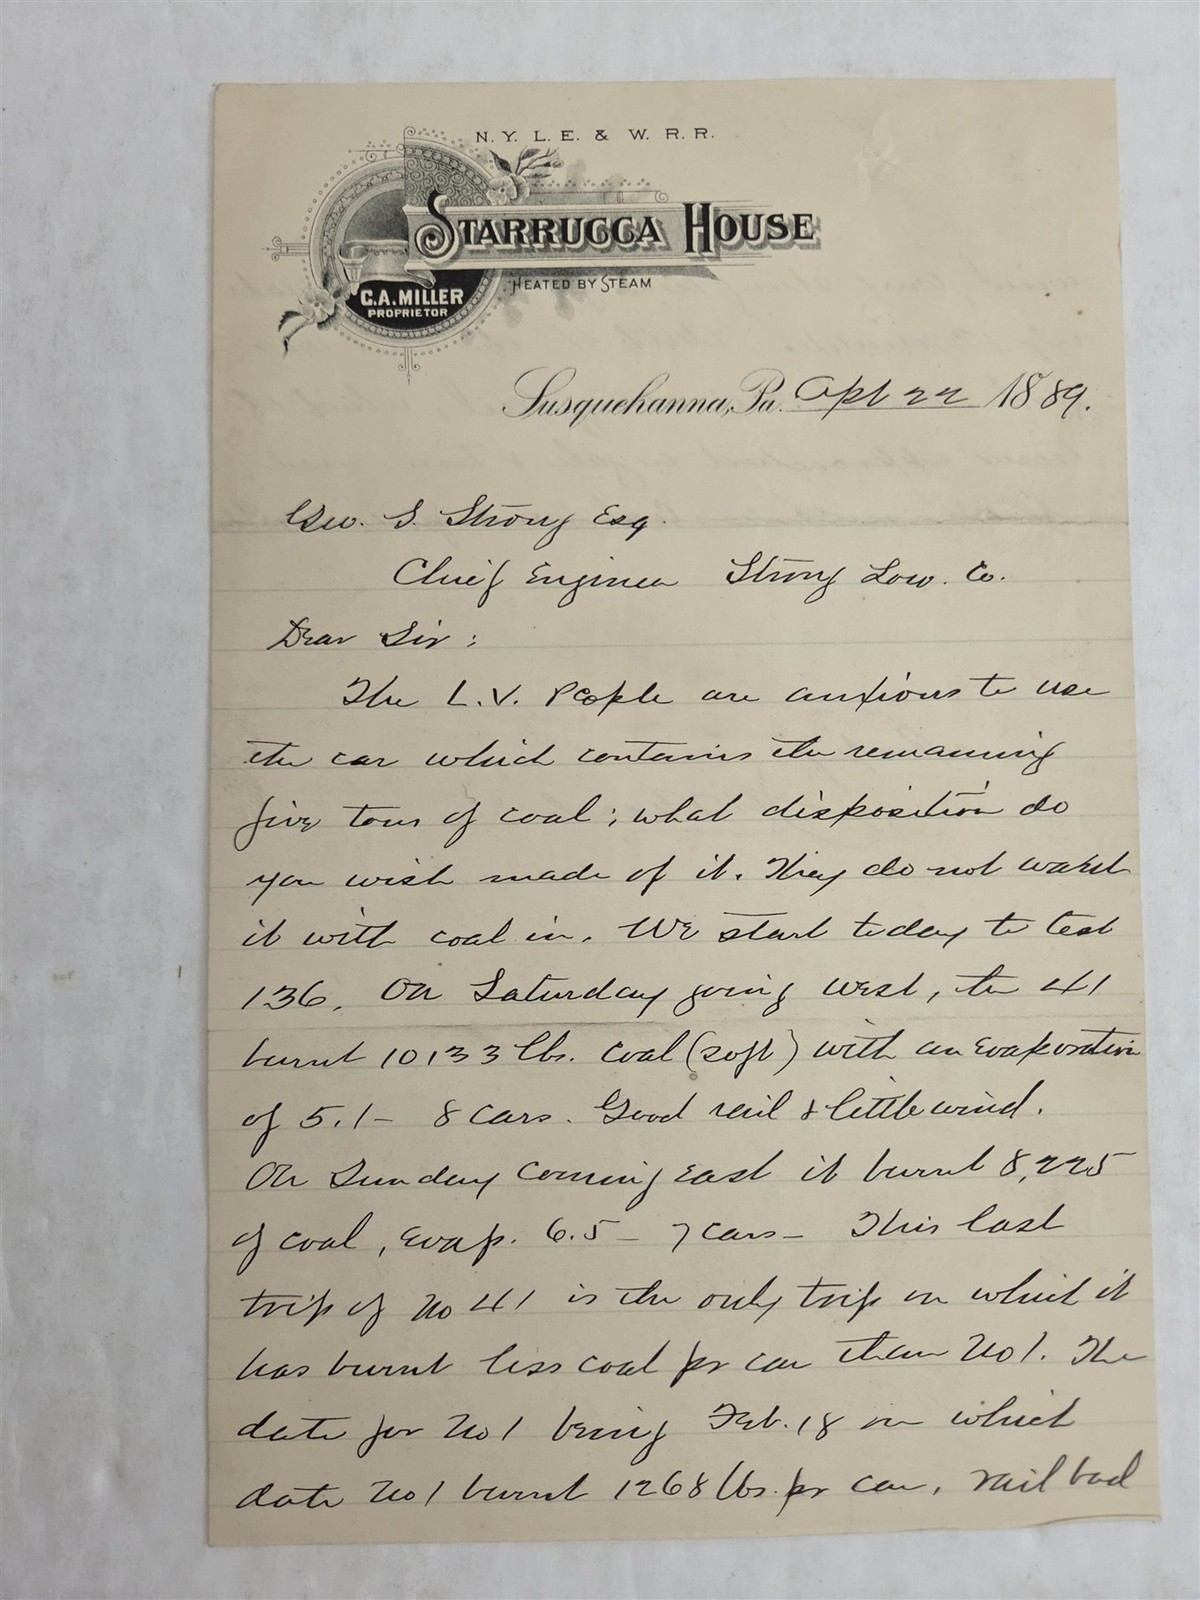 N. Y. L. E. & W. R. R.
STARRUCCA HOUSE
HEATED BY STEAM
C.A. MILLER
PROPRIETOR
Susquehanna, Pa. Apl 22 1889.
Geo. S. Strong Esq.
Chief Engineer Strong Loco. Co.
Dear Sir:
The L.V. People are anxious to use
the car which contains the remaining
five tons of coal; what disposition do
you wish made of it. They do not want
it with coal in. We start today to test
136. On Saturday going west, the 41
burnt 10133 lbs. coal (soft) with an evaporation
of 5.1 – 8 cars. Good rail & little wind.
On Sunday coming east it burnt 8,225
of coal, evap. 6.5 – 7 cars – This last
trip of No 41 is the only trip on which it
has burnt less coal pr car than No 1. The
date for No 1 being Feb. 18 on which
date No 1 burnt 1268 lbs. pr car, rail bad